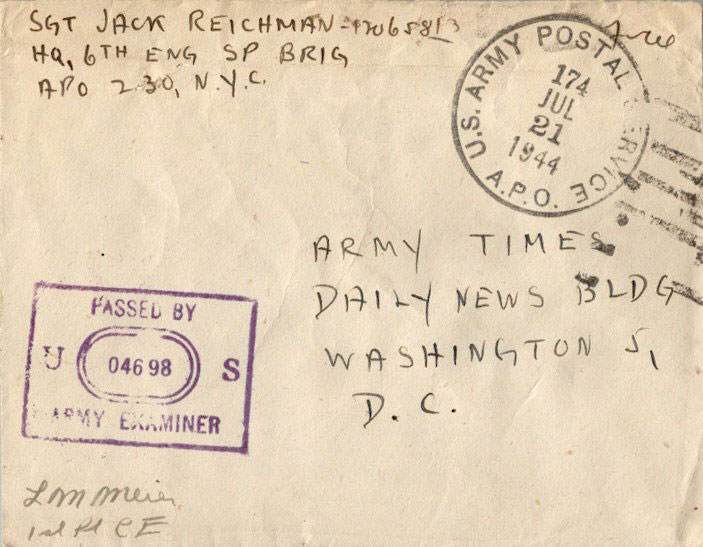 SGT JACK REICHMAN-12065813
HQ, 6TH ENG SP BRIG
APO 230, N.Y.C.
free
U.S. ARMY POSTAL SERVICE
174
JUL
21
1944
A.P.O.
ARMY TIMES
DAILY NEWS BLDG
WASHINGTON 5,
D.C.
PASSED BY
U 04698 S
ARMY EXAMINER
L M Meier
1st Lt CE